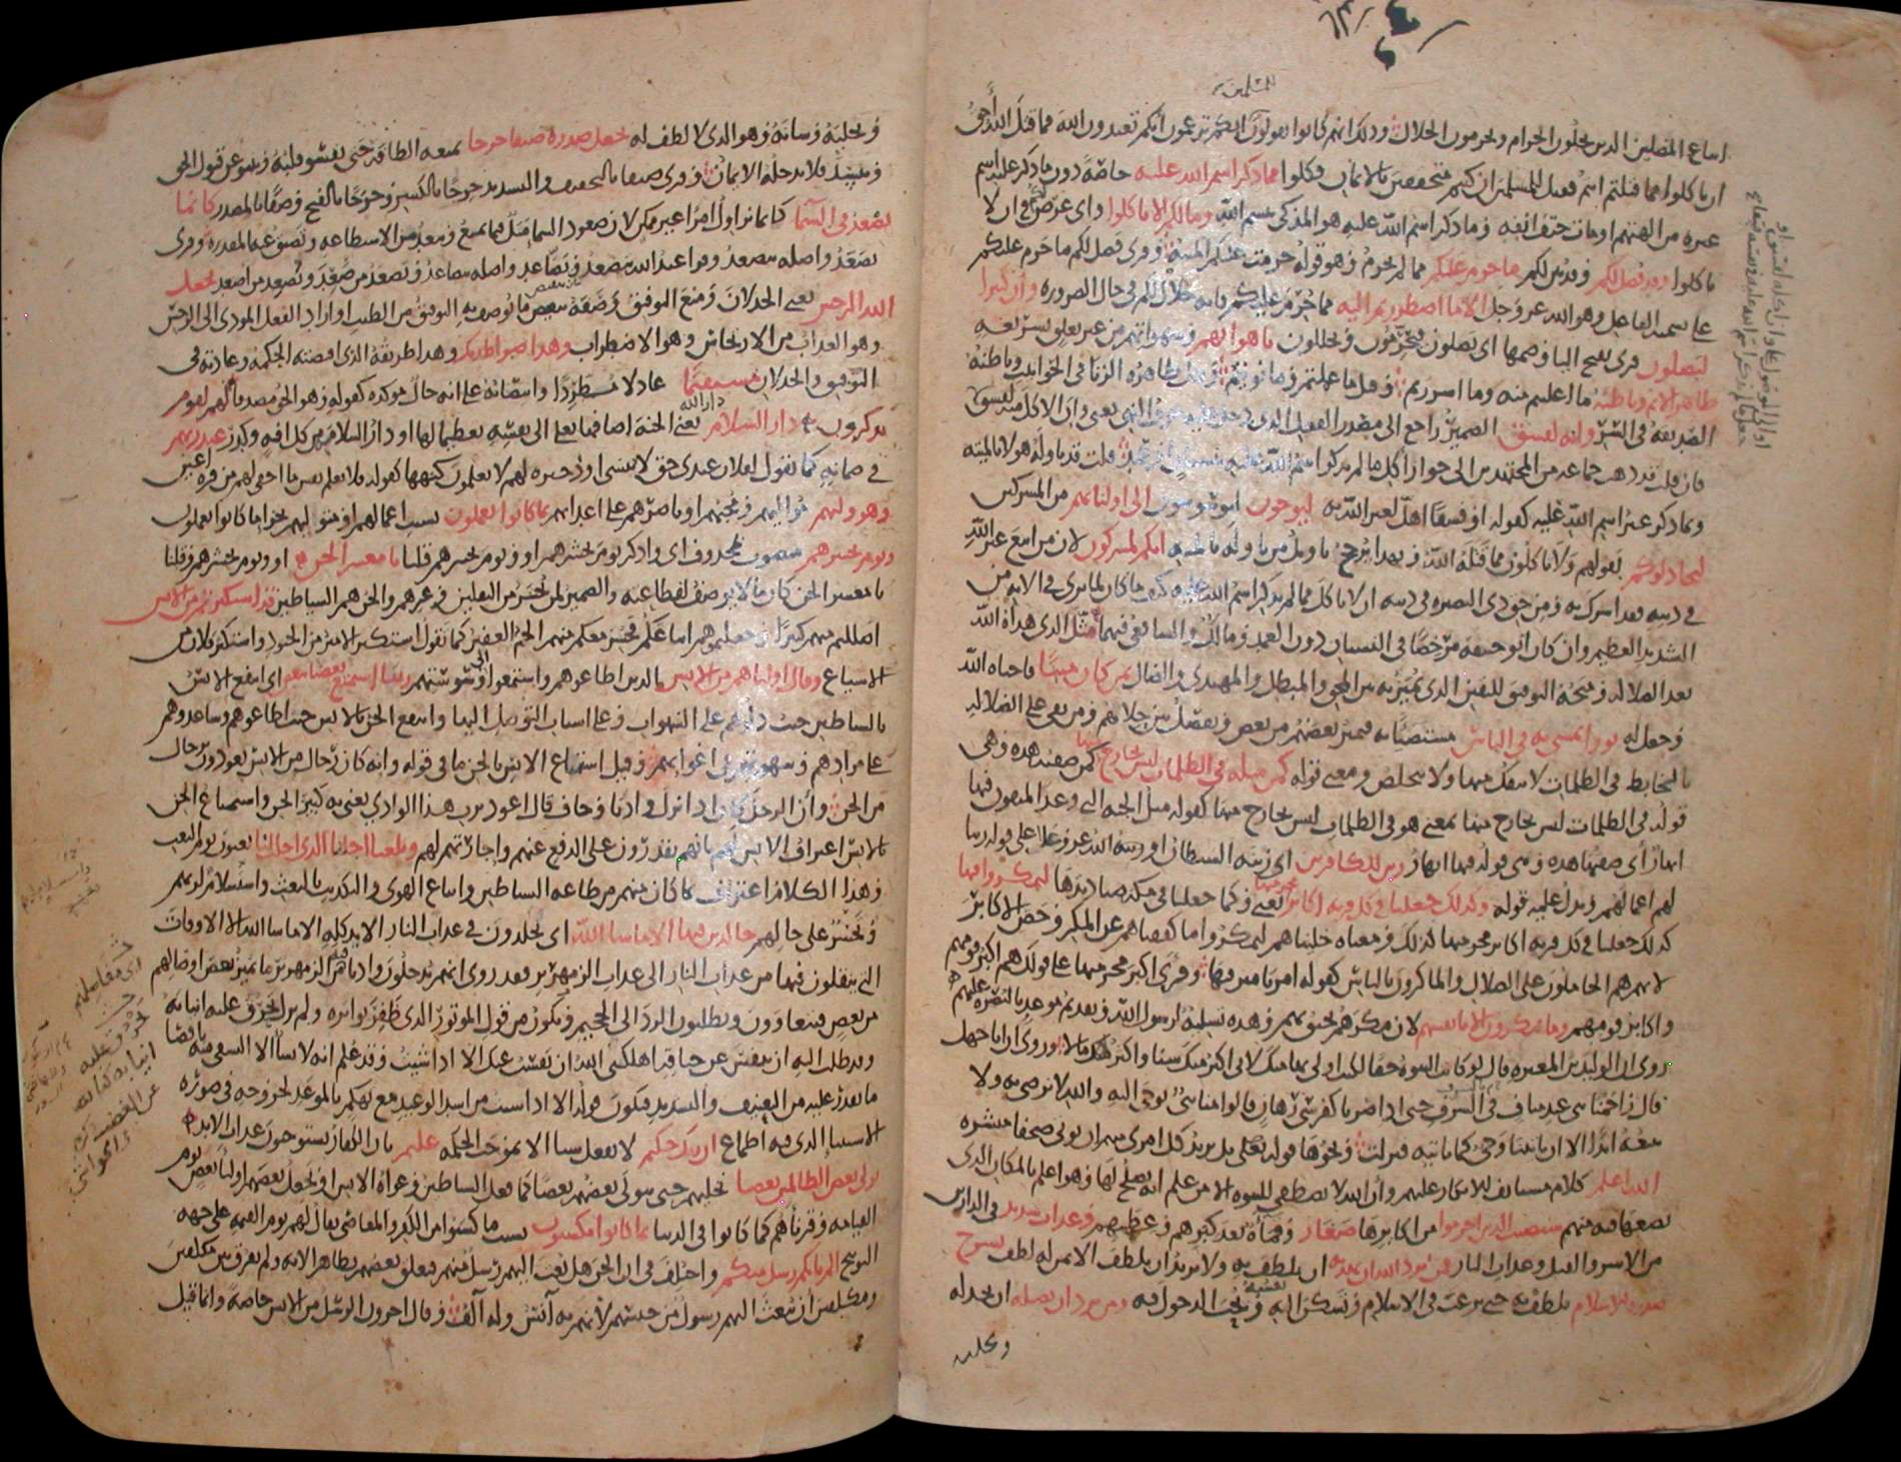 للمسلمين
اتباع المضلين الذين يحلون الحرام ويحرمون الحلال وذلك انهم كانوا يقولون للمسلمين انكم تزعمون انكم تعبدون الله فما قتل الله أحق
ان تاكلوا مما قتلتم انتم فقيل للمسلمين ان كنتم متحققين بالايمان فكلوا مما ذكر اسم الله عليه خاصة دون ما ذكر عليه اسم
غيره من الهتهم او مات حتف انفه وما ذكر اسم الله عليه هو المذكى ببسم الله وما لكم الا تاكلوا واي غرض لكم في ان لا
تاكلوا وقد فصل لكم وقد بين لكم ما حرم عليكم مما لم يحرم وهو قوله حرمت عليكم الميتة وقرى فصل لكم ما حرم عليكم
على تسمية الفاعل وهو الله عز وجل الا ما اضطررتم اليه مما حرم عليكم فانه حلال لكم في حال الضرورة وان كثيرا
ليضلون قرى بفتح اليا وضمها اي يضلون فيحرمون ويحللون باهوائهم وشهواتهم من غير تعلق بشريعة
ظاهر الاثم وباطنه ما اعلنتم منه وما اسررتم وقيل ما عملتم وما نويتم وقيل ظاهره الزنا في الحوانيت وباطنه
الصديقة في السر وانه لفسق الضمير راجع الى مصدر الفعل الذي دخل عليه حرف النهي يعني وان الاكل منه لفسق
فان قلت قد ذهب جماعة من المجتهدين الى جواز أكل ما لم يذكر اسم الله عليه بنسيان او عمد قلت قد تاوله هولا بالميتة
وبما ذكر غير اسم الله عليه كقوله او فسقا اهل لغير الله به ليوحون ليوسوسون الى اوليائهم من المشركين
ليجادلوكم بقولهم ولا تاكلون مما قتله الله وبهذا يرجح تاويل من تاوله بالميتة انكم لمشركون لان من اتبع غير الله
في دينه فقد اشرك به ومن حق ذي البصيرة في دينه ان لا ياكل مما لم يذكر اسم الله عليه كيف ما كان لما يرى في الاية من
التشديد العظيم وان كان ابو حنيفة مرخصا في النسيان دون العمد ومالك والشافعي فيهما مثل الذي هداه الله
بعد الضلالة ومنحه التوفيق لليقين الذي يميز به بين المحق والمبطل والمهتدي والضال بمن كان ميتا فاحياه الله
وجعل له نورا يمشي به في الناس مستضيا به فيميز بعضهم من بعض ويفصل بين حلاهم ومن بقي على الضلالة
بالخابط في الظلمات لا ينفك منها ولا يتخلص ومعنى قوله كمن مثله في الظلمات ليس بخارج منها كمن صفته هذه وهي
قوله في الظلمات ليس بخارج منها بمعنى هو في الظلمات ليس بخارج منها كقوله مثل الجنة التي وعد المتقون فيها
انهار أي صفتها هذه وهي قوله فيها انهار زين للكافرين اي زينه الشيطان او زينه الله عز وعلا على قوله زينا
لهم اعمالهم ويدل عليه قوله وكذلك جعلنا في كل قرية اكابر مجرميها يعني وكما جعلنا في مكة صناديدها ليمكروا فيها
كذلك جعلنا في كل قرية اكابر مجرميها لذلك ومعناه خليناهم ليمكروا وما كففناهم عن المكر وخص الاكابر
لانهم هم الحاملون على الضلال والماكرون بالناس كقوله امرنا مترفيها وقرى اكبر مجرميها على قولك هم اكبر قومهم
واكابر قومهم وما يمكرون الا بانفسهم لان مكرهم يحيق بهم وهذه تسلية لرسول الله وتقديم موعد بالنصرة عليهم
روى ان الوليد بن المغيرة قال لو كانت النبوة حقا لكنت اولى بها منك لاني اكبر منك سنا واكثر منك مالا وروى ان ابا جهل
قال زاحمنا بني عبد مناف في الشرف حتى اذا صرنا كفرسي رهان قالوا منا نبي يوحى اليه والله لا نرضى به ولا
نتبعه أبدا الا ان ياتينا وحي كما ياتيه فنزلت ونحوها قوله تعالى بل يريد كل امرى منهم ان يوتى صحفا منشرة
الله اعلم كلام مستانف للانكار عليهم وأن الله لا يصطفي للنبوة الا من علم انه يصلح لها وهو اعلم بالمكان الذي
يضعها فيه منهم سيصيب الذين اجرموا من اكابرها صغار وقماة بعد كبرهم وعظمتهم وعذاب شديد في الدارين
من الاسر والقتل وعذاب النار فمن يرد الله ان يهديه ان يلطف به ولا يريد ان يلطف الا بمن له لطف يشرح
صدره للاسلام يلطف به حتى يرغب في الاسلام وتسكن اليه نفسه ويحب الدخول فيه ومن يرد ان يضله ان يخذله
ويخليه
ويخليه وشانه وهو الذي لا لطف له يجعل صدره ضيقا حرجا يمنعه الطافه حتى يقسو قلبه وينبو عن قبول الحق
وينسد فلا يدخله الايمان وقرى ضيقا بالتخفيف والتشديد حرجا بالكسر وحرجا بالفتح وصفا بالمصدر كانما
يصعد في السما كانما يزاول امرا غير ممكن لان صعود السما مثل فيما يمتنع ويبعد من الاستطاعة وتضيق عنه المقدرة وقرى
يصعد واصله يتصعد وقرا عبد الله يتصعد ويصاعد واصله يتصاعد ويصعد من صعد ويصعد من اصعد يجعل
الله الرجس يعني الخذلان ومنع التوفيق وصفه بنقيض ما يوصف به التوفيق من الطيب او اراد الفعل المودي الى الرجس
وهو العذاب من الارتجاس وهو الاضطراب وهذا صراط ربك وهذا طريقه الذي اقتضته الحكمة وعادته في
التوفيق والخذلان مستقيما عادلا مطردا وانتصابه على انه حال موكدة كقوله وهو الحق مصدقا لهم لقوم
يذكرون دار السلام دار الله يعني الجنة اضافها تعالى الى نفسه تعظيما لها او دار السلامة من كل افة وكدر عند ربهم
في ضمانه كما تقول لفلان عندي حق لا ينسى او ذخيرة لهم لا يعلمون كنهها كقوله فلا تعلم نفس ما اخفي لهم من قرة اعين
وهو وليهم مواليهم ومحبهم او ناصرهم على اعدائهم بما كانوا يعملون بسبب اعمالهم او متوليهم بجزا ما كانوا يعملون
ويوم نحشرهم منصوب بمحذوف اي واذكر يوم نحشرهم او ويوم نحشرهم قلنا يا معشر الجن او ويوم نحشرهم وقلنا
يا معشر الجن كان ما لا يوصف لفظاعته والضمير لمن يحشر من الثقلين وغيرهم والجن هم الشياطين قد استكثرتم من الانس
اضللتم منهم كثيرا او جعلتموهم اتباعكم فحشر معكم منهم الجم الغفير كما تقول استكثر الامير من الجنود واستكثر فلان من
الاشياع وقال اولياؤهم من الانس الذين اطاعوهم واستمعوا الى وسوستهم ربنا استمتع بعضنا ببعض اي انتفع الانس
بالشياطين حيث دلوهم على الشهوات وعلى اسباب التوصل اليها وانتفع الجن بالانس حيث اطاعوهم وساعدوهم
على مرادهم وشهوتهم في اغوائهم وقيل استمتاع الانس بالجن ما في قوله وانه كان رجال من الانس يعوذون برجال
من الجن وأن الرجل كان اذا نزل واديا وخاف قال اعوذ برب هذا الوادي يعني به كبير الجن واستمتاع الجن
بالانس اعتراف الانس لهم بانهم يقدرون على الدفع عنهم واجارتهم لهم وبلغنا اجلنا الذي اجلت لنا يعنون يوم البعث
وهذا الكلام اعتراف بما كان منهم من طاعة الشياطين واتباع الهوى والتكذيب بالبعث واستسلام لربهم
وتحسر على حالهم خالدين فيها الا ما شا الله اي يخلدون في عذاب النار الابد كله الا ما شا الله الا الاوقات
التي ينقلون فيها من عذاب النار الى عذاب الزمهرير فقد روى انهم يدخلون واديا فيه من الزمهرير ما يميز بعض اوصالهم
من بعض فيتعاوون ويطلبون الرد الى الجحيم او يكون من قول الموتور الذي ظفر بواتره ولم يزل يحرق عليه انيابه
وقد طلب اليه ان ينفس عن خناقه اهلكني الله ان نفست عنك الا اذا شيت وقد علم انه لا يشا الا التشفي منه باقصا
ما يقدر عليه من التعنيف والتشديد فيكون قوله الا اذا شيت من اشد الوعيد مع تهكم بالموعد لخروجه في صورة
الاستثنا الذي فيه اطماع ان ربك حكيم لا يفعل شيا الا بموجب الحكمة عليم بان الكفار يستوجبون عذاب الابد
نولي بعض الظالمين بعضا نخليهم حتى يتولى بعضهم بعضا كما فعل الشياطين وغواة الانس او نجعل بعضهم اوليا بعض يوم
القيامة وقرناهم كما كانوا في الدنيا بما كانوا يكسبون بسبب ما كسبوا من الكفر والمعاصي يقال لهم يوم القيمة على جهة
التوبيخ الم ياتكم رسل منكم واختلف في ان الجن هل بعث اليهم رسل منهم فتعلق بعضهم بظاهر الاية ولم يفرق بين مكلفين
ومكلفين أن يبعث اليهم رسول من جنسهم لأنهم به آنس وله آلف وقال اخرون الرسل من الانس خاصة وانما قيل